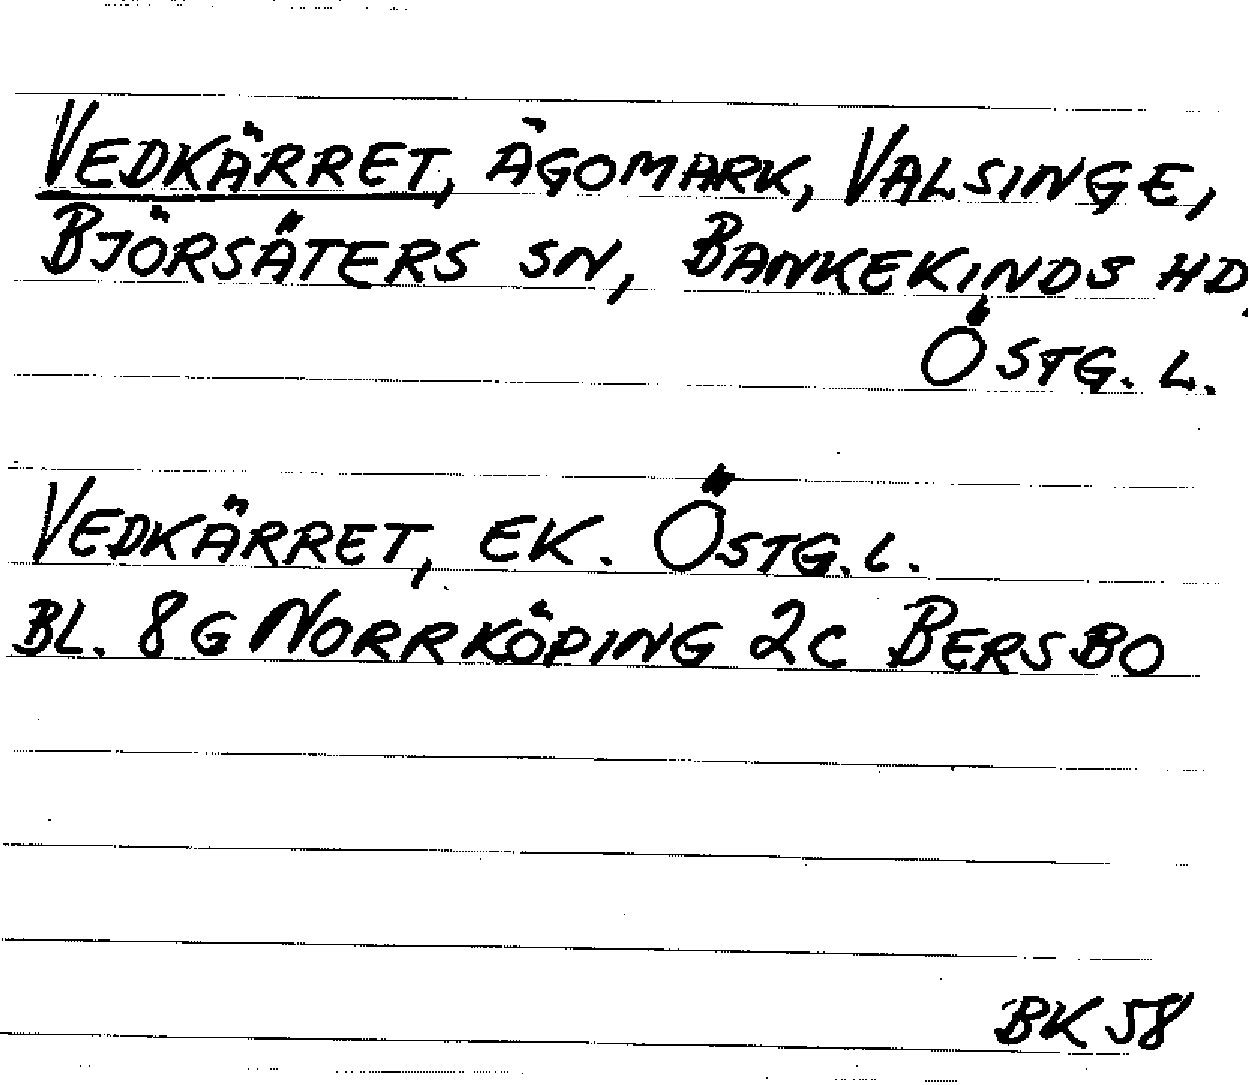 VEDKÄRRET, ÄGOMARK, VALSINGE,
BJÖRSÄTERS SN, BANKEKINDS HD,
ÖSTG. L.
VEDKÄRRET, EK. ÖSTG. L.
BL. 8G NORRKÖPING 2C BERSBO
BK 58